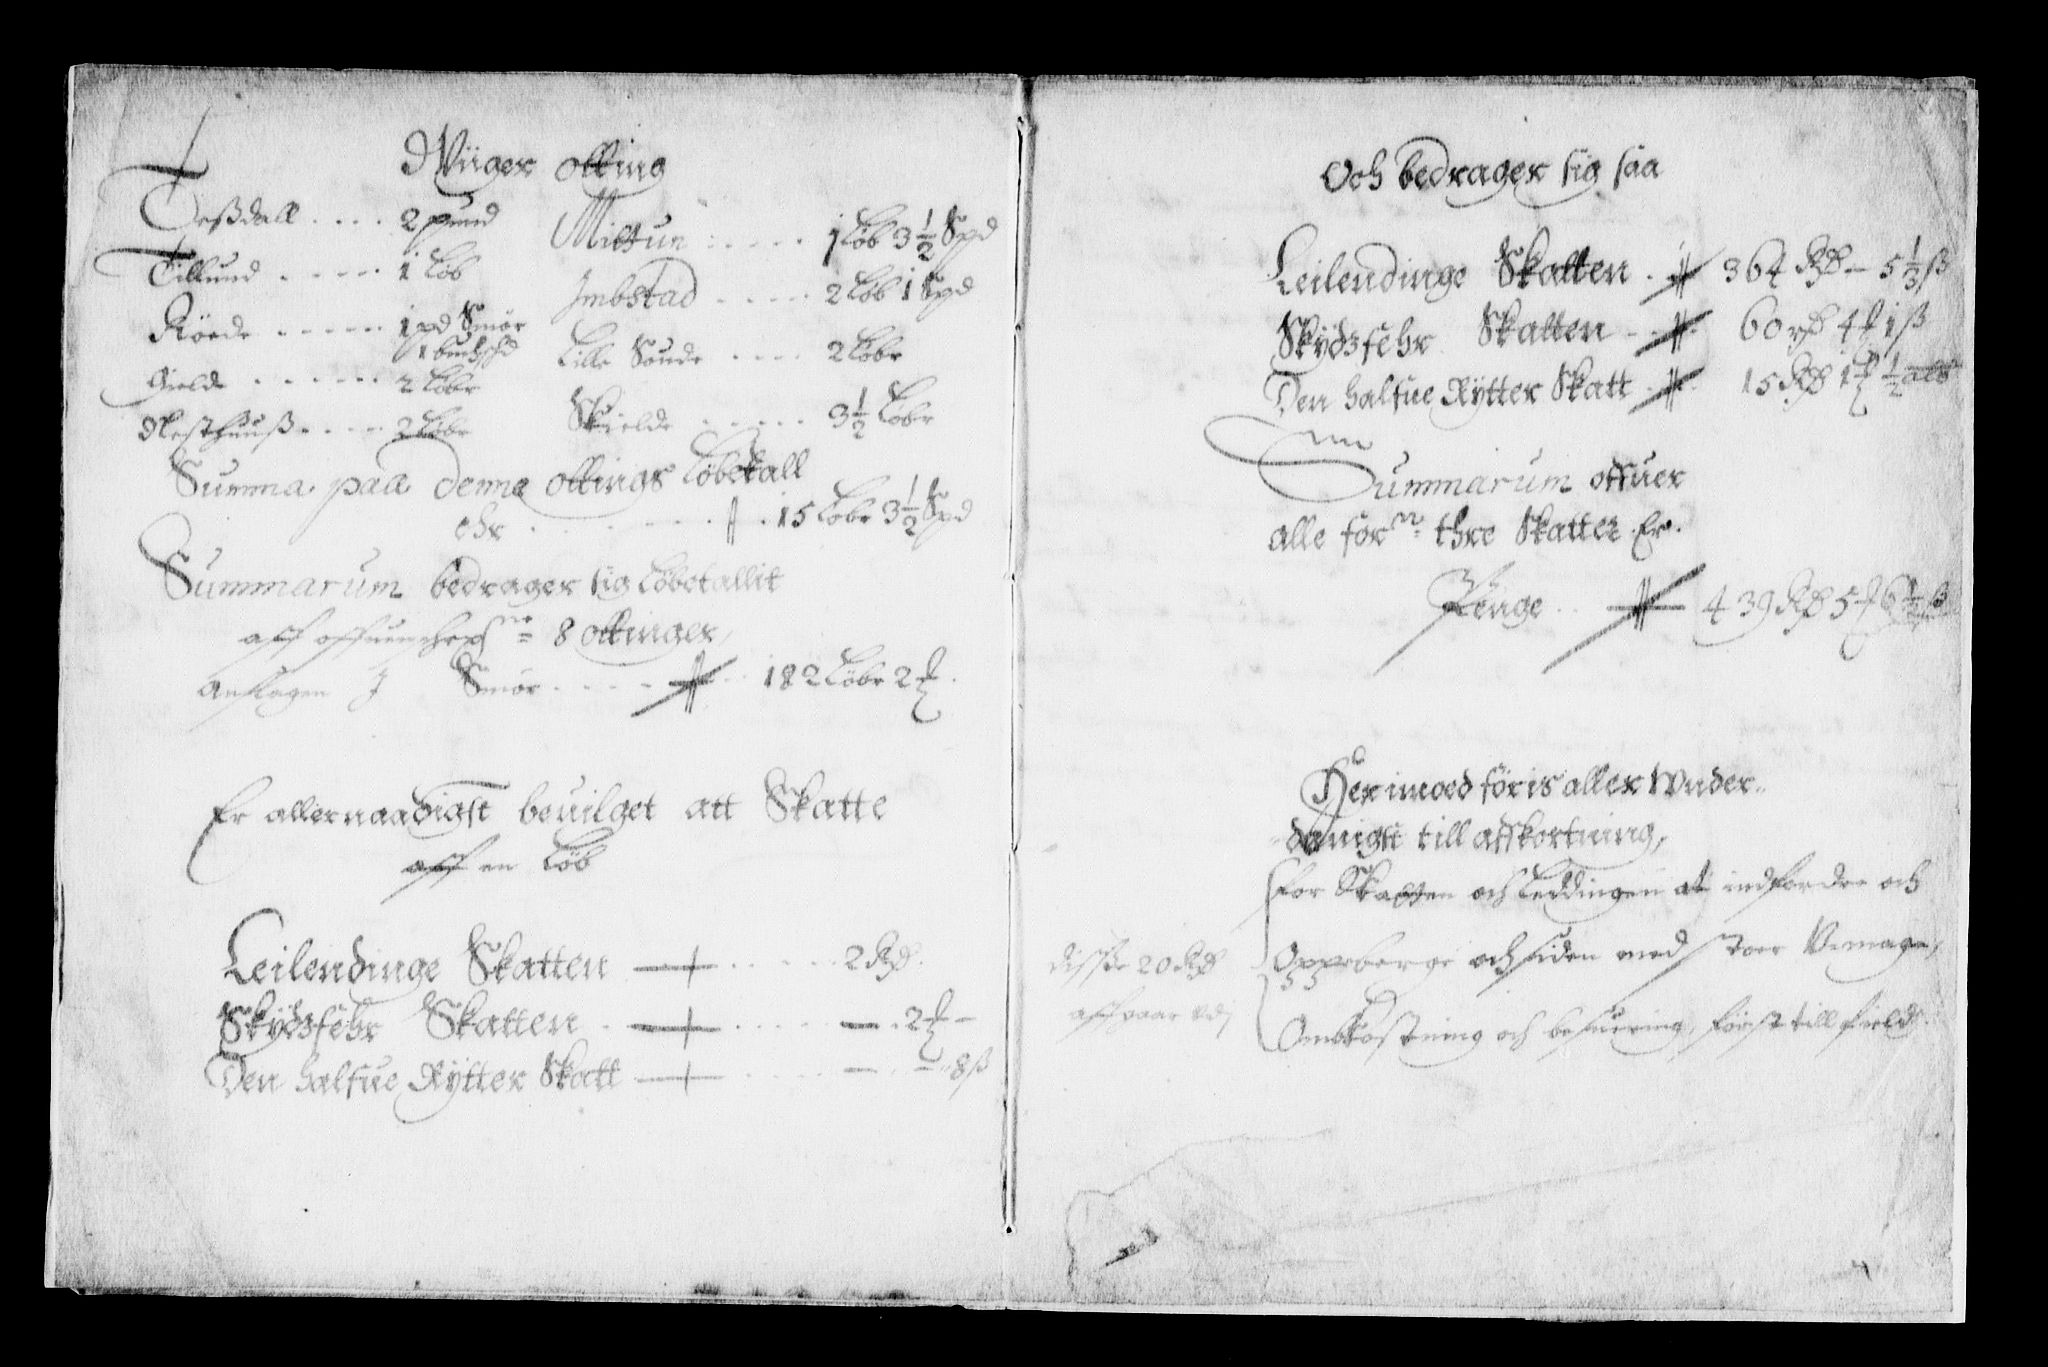 Wiiger otting
Teßdall . . . . 2 pund
Tillund . . . . . 1 Løb
Röede . . . . . . 1 pd Smör
1 buchsch
Gielde . . . . . . 2 Løbr
Nesthuuß . . . . 2 Løbr
Miltun . . . . . 1 Løb 3½ Spd
Imbstad . . . . . 2 Løb 1 Spd
Lille Soude . . . . 2 Løbr
Skielde . . . . . 3½ Løbr
Summa paa denne ottings Løbetall
ehr . . . . . . . 15 Løbr 3½ Spd
Summarum bedrager sig Løbetallit
aff offuen 8 ottinger,
Anslagen J Smör . . . . . 182 Løbr 2
Er allernaadigst beuilget att Skatte
aff en Løb
Leilendinge Skatten . . . . . 2 Rd.
Skydzfehr Skatten . . . . . . 2
Den halfue Rytter Skatt . . . . 8 ß
Och bedrager sig saa
Leilendinge Skatten . 364 Rd – 5⅓ ß
Skydzfehr Skatten . . 60 rd 4 1 ß
Den halfue Rytter Skatt . 15 Rd 1 ½ alb
Summarum offuer
alle forne thre Skatter . Er .
Penge . . 439 Rd 5 6½ ß
Herimoed föris aller Wnder„
„danigst till affkortning,
for Skatten och Leddingen at indfordre och
Oppeberge och siden med stoer Vmage,
Ombkostning och besuering, först till field
disse 20 Rd